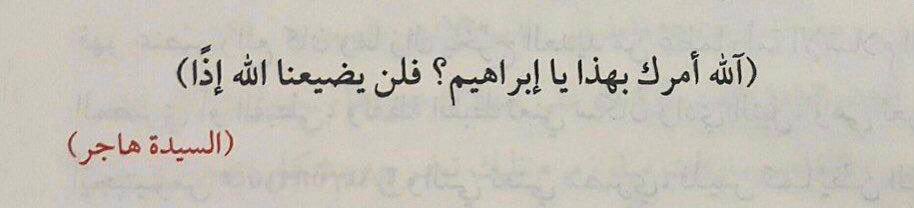 (آلله أمرك بهذا يا إبراهيم؟ فلن يضيعنا الله إذًا)
(السيدة هاجر)